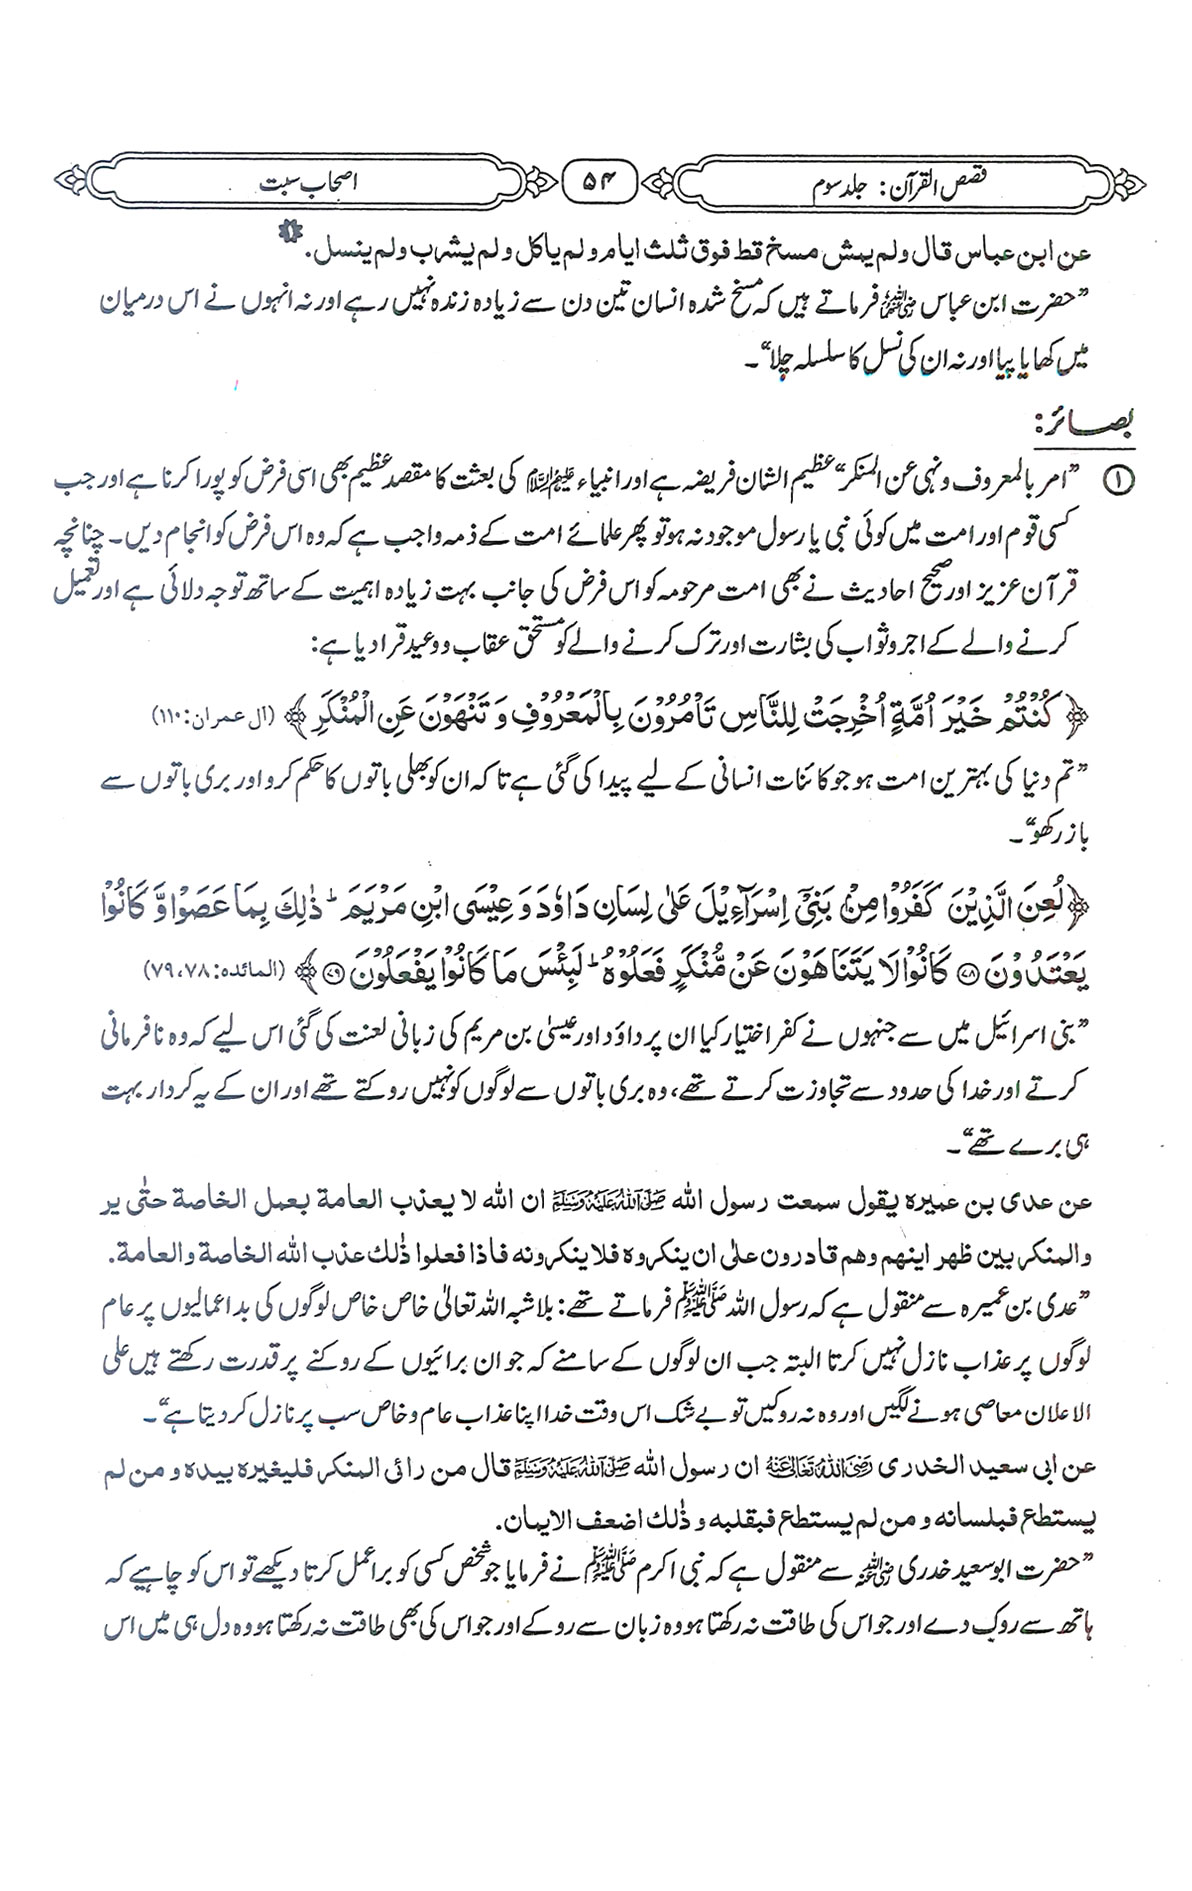 قصص القرآن: جلد سوم
۵۴
اصحاب سبت
عن ابن عباس قال ولم یمش مسخ قط فوق ثلث ایام ولم یاکل ولم یشرب ولم ینسل. ۱
”حضرت ابن عباس رضی اللہ عنہ فرماتے ہیں کہ مسخ شدہ انسان تین دن سے زیادہ زندہ نہیں رہے اور نہ انہوں نے اس درمیان
میں کھایا پیا اور نہ ان کی نسل کا سلسلہ چلا“۔
بصائر:
۱ ”امر بالمعروف و نہی عن المنکر“ عظیم الشان فریضہ ہے اور انبیاء علیہم السلام کی بعثت کا مقصد عظیم بھی اسی فرض کو پورا کرنا ہے اور جب
کسی قوم اور امت میں کوئی نبی یا رسول موجود نہ ہو تو پھر علمائے امت کے ذمہ واجب ہے کہ وہ اس فرض کو انجام دیں۔ چنانچہ
قرآن عزیز اور صحیح احادیث نے بھی امت مرحومہ کو اس فرض کی جانب بہت زیادہ اہمیت کے ساتھ توجہ دلائی ہے اور تعمیل
کرنے والے کے اجر و ثواب کی بشارت اور ترک کرنے والے کو مستحق عقاب و وعید قرار دیا ہے:
﴿كُنْتُمْ خَيْرَ اُمَّةٍ اُخْرِجَتْ لِلنَّاسِ تَاْمُرُوْنَ بِالْمَعْرُوْفِ وَ تَنْهَوْنَ عَنِ الْمُنْكَرِ﴾ (آل عمران: ۱۱۰)
”تم دنیا کی بہترین امت ہو جو کائنات انسانی کے لیے پیدا کی گئی ہے تاکہ ان کو بھلی باتوں کا حکم کرو اور بری باتوں سے
باز رکھو“۔
﴿لُعِنَ الَّذِيْنَ كَفَرُوْا مِنْۢ بَنِيْٓ اِسْرَآءِيْلَ عَلٰى لِسَانِ دَاوٗدَ وَ عِيْسَى ابْنِ مَرْيَمَ ؕ ذٰلِكَ بِمَا عَصَوْا وَّ كَانُوْا
يَعْتَدُوْنَ ۷۸ كَانُوْا لَا يَتَنَاهَوْنَ عَنْ مُّنْكَرٍ فَعَلُوْهُ ؕ لَبِئْسَ مَا كَانُوْا يَفْعَلُوْنَ ۷۹﴾ (المائدہ: ۷۸، ۷۹)
”بنی اسرائیل میں سے جنہوں نے کفر اختیار کیا ان پر داؤد اور عیسیٰ بن مریم کی زبانی لعنت کی گئی اس لیے کہ وہ نافرمانی
کرتے اور خدا کی حدود سے تجاوزت کرتے تھے، وہ بری باتوں سے لوگوں کو نہیں روکتے تھے اور ان کے یہ کردار بہت
ہی برے تھے“۔
عن عدی بن عمیرہ یقول سمعت رسول اللہ صلی اللہ علیہ وسلم ان اللہ لا یعذب العامة بعمل الخاصة حتٰی یر
والمنکر بین ظهر اینهم وهم قادرون علٰی ان ینکروہ فلا ینکرونه فاذا فعلوا ذٰلك عذب الله الخاصة والعامة.
”عدی بن عمیرہ سے منقول ہے کہ رسول اللہ صلی اللہ علیہ وسلم فرماتے تھے: بلاشبہ اللہ تعالیٰ خاص خاص لوگوں کی بداعمالیوں پر عام
لوگوں پر عذاب نازل نہیں کرتا البتہ جب ان لوگوں کے سامنے کہ جو ان برائیوں کے روکنے پر قدرت رکھتے ہیں علی
الاعلان معاصی ہونے لگیں اور وہ نہ روکیں تو بے شک اس وقت خدا اپنا عذاب عام و خاص سب پر نازل کر دیتا ہے“۔
عن ابی سعید الخدری رضی اللہ تعالیٰ عنہ ان رسول اللہ صلی اللہ علیہ وسلم قال من رائی المنکر فلیغیرہ بیدہ و من لم
یستطع فبلسانه و من لم یستطع فبقلبه و ذٰلك اضعف الایمان.
”حضرت ابو سعید خدری رضی اللہ عنہ سے منقول ہے کہ نبی اکرم صلی اللہ علیہ وسلم نے فرمایا جو شخص کسی کو برا عمل کرتا دیکھے تو اس کو چاہیے کہ
ہاتھ سے روک دے اور جو اس کی طاقت نہ رکھتا ہو وہ زبان سے روکے اور جو اس کی بھی طاقت نہ رکھتا ہو وہ دل ہی میں اس